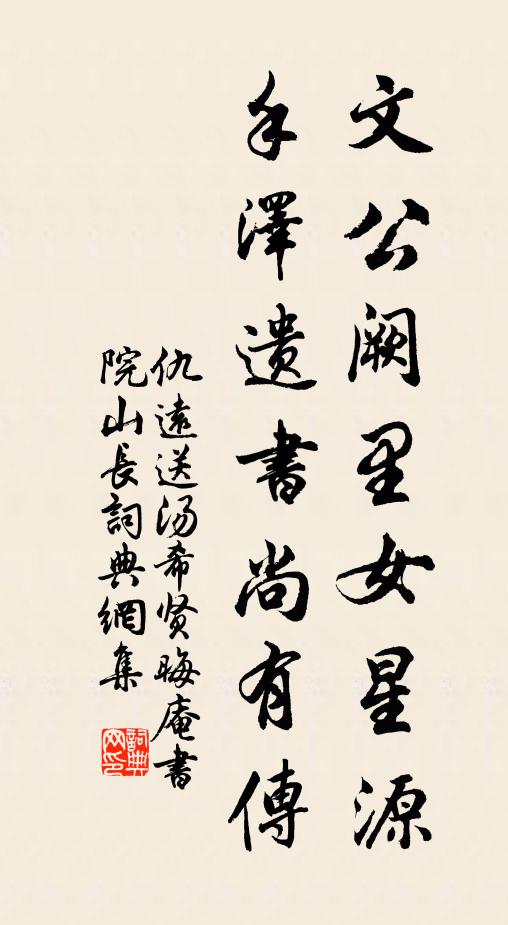 文公闕里女星源
手澤遺書尚有傳
仇遠送汤希贤晦庵書
院山長詞典網集
詞典
网印